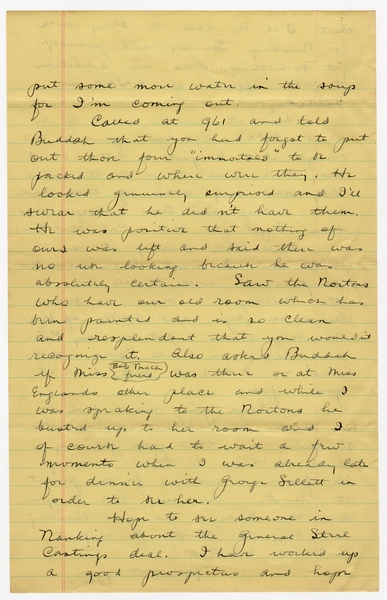 put some more water in the soup
for I'm coming out.
Called at 961 and told
Buddah that you had forgot to put
out those four "immortals" to be
packed and where were they. He
looked genuinely surprised and I'll
swear that he didn't have them.
He was positive that nothing of
ours was left and said there was
no use looking because he was
absolutely certain. Saw the Nortons
who have our old room which has
been painted and is so clean
and resplendant that you wouldn't
recognize it. Also asked Buddah
if Miss (Bob friend) was there or at Miss
Englands other place and while I
was speaking to the Nortons he
busted up to her room and I
of course had to wait a few
moments when I was already late
for dinner with George Sellett in
order to see her.
Hope to see someone in
Nanking about the General Steel
Castings deal. I have worked up
a good prospectus and hope